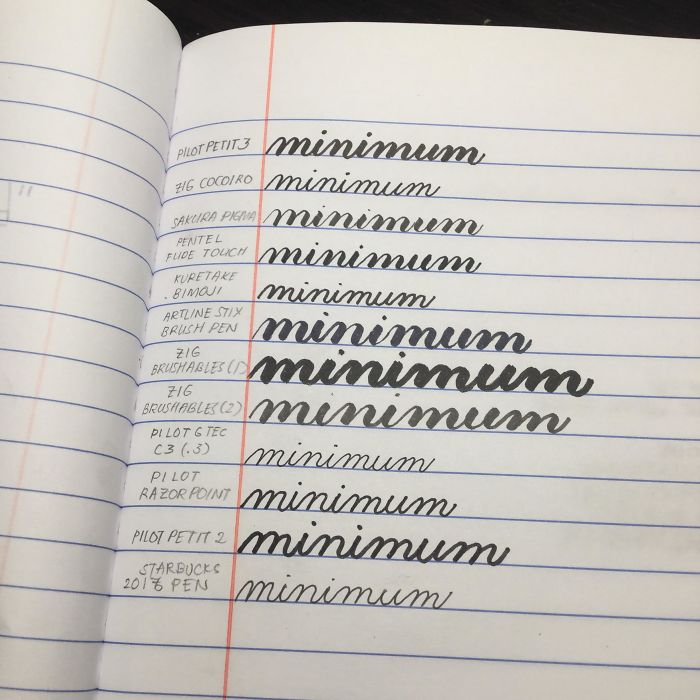 PILOT PETIT 3 minimum
ZIG COCOIRO minimum
SAKURA PIGMA minimum
PENTEL
FUDE TOUCH minimum
KURETAKE
BIMOJI minimum
ARTLINE STIX
BRUSH PEN minimum
ZIG
BRUSHABLES (1) minimum
ZIG
BRUSHABLES (2) minimum
PILOT G TEC
C3 (.3) minimum
PILOT
RAZOR POINT minimum
PILOT PETIT 2 minimum
STARBUCKS
2018 PEN minimum